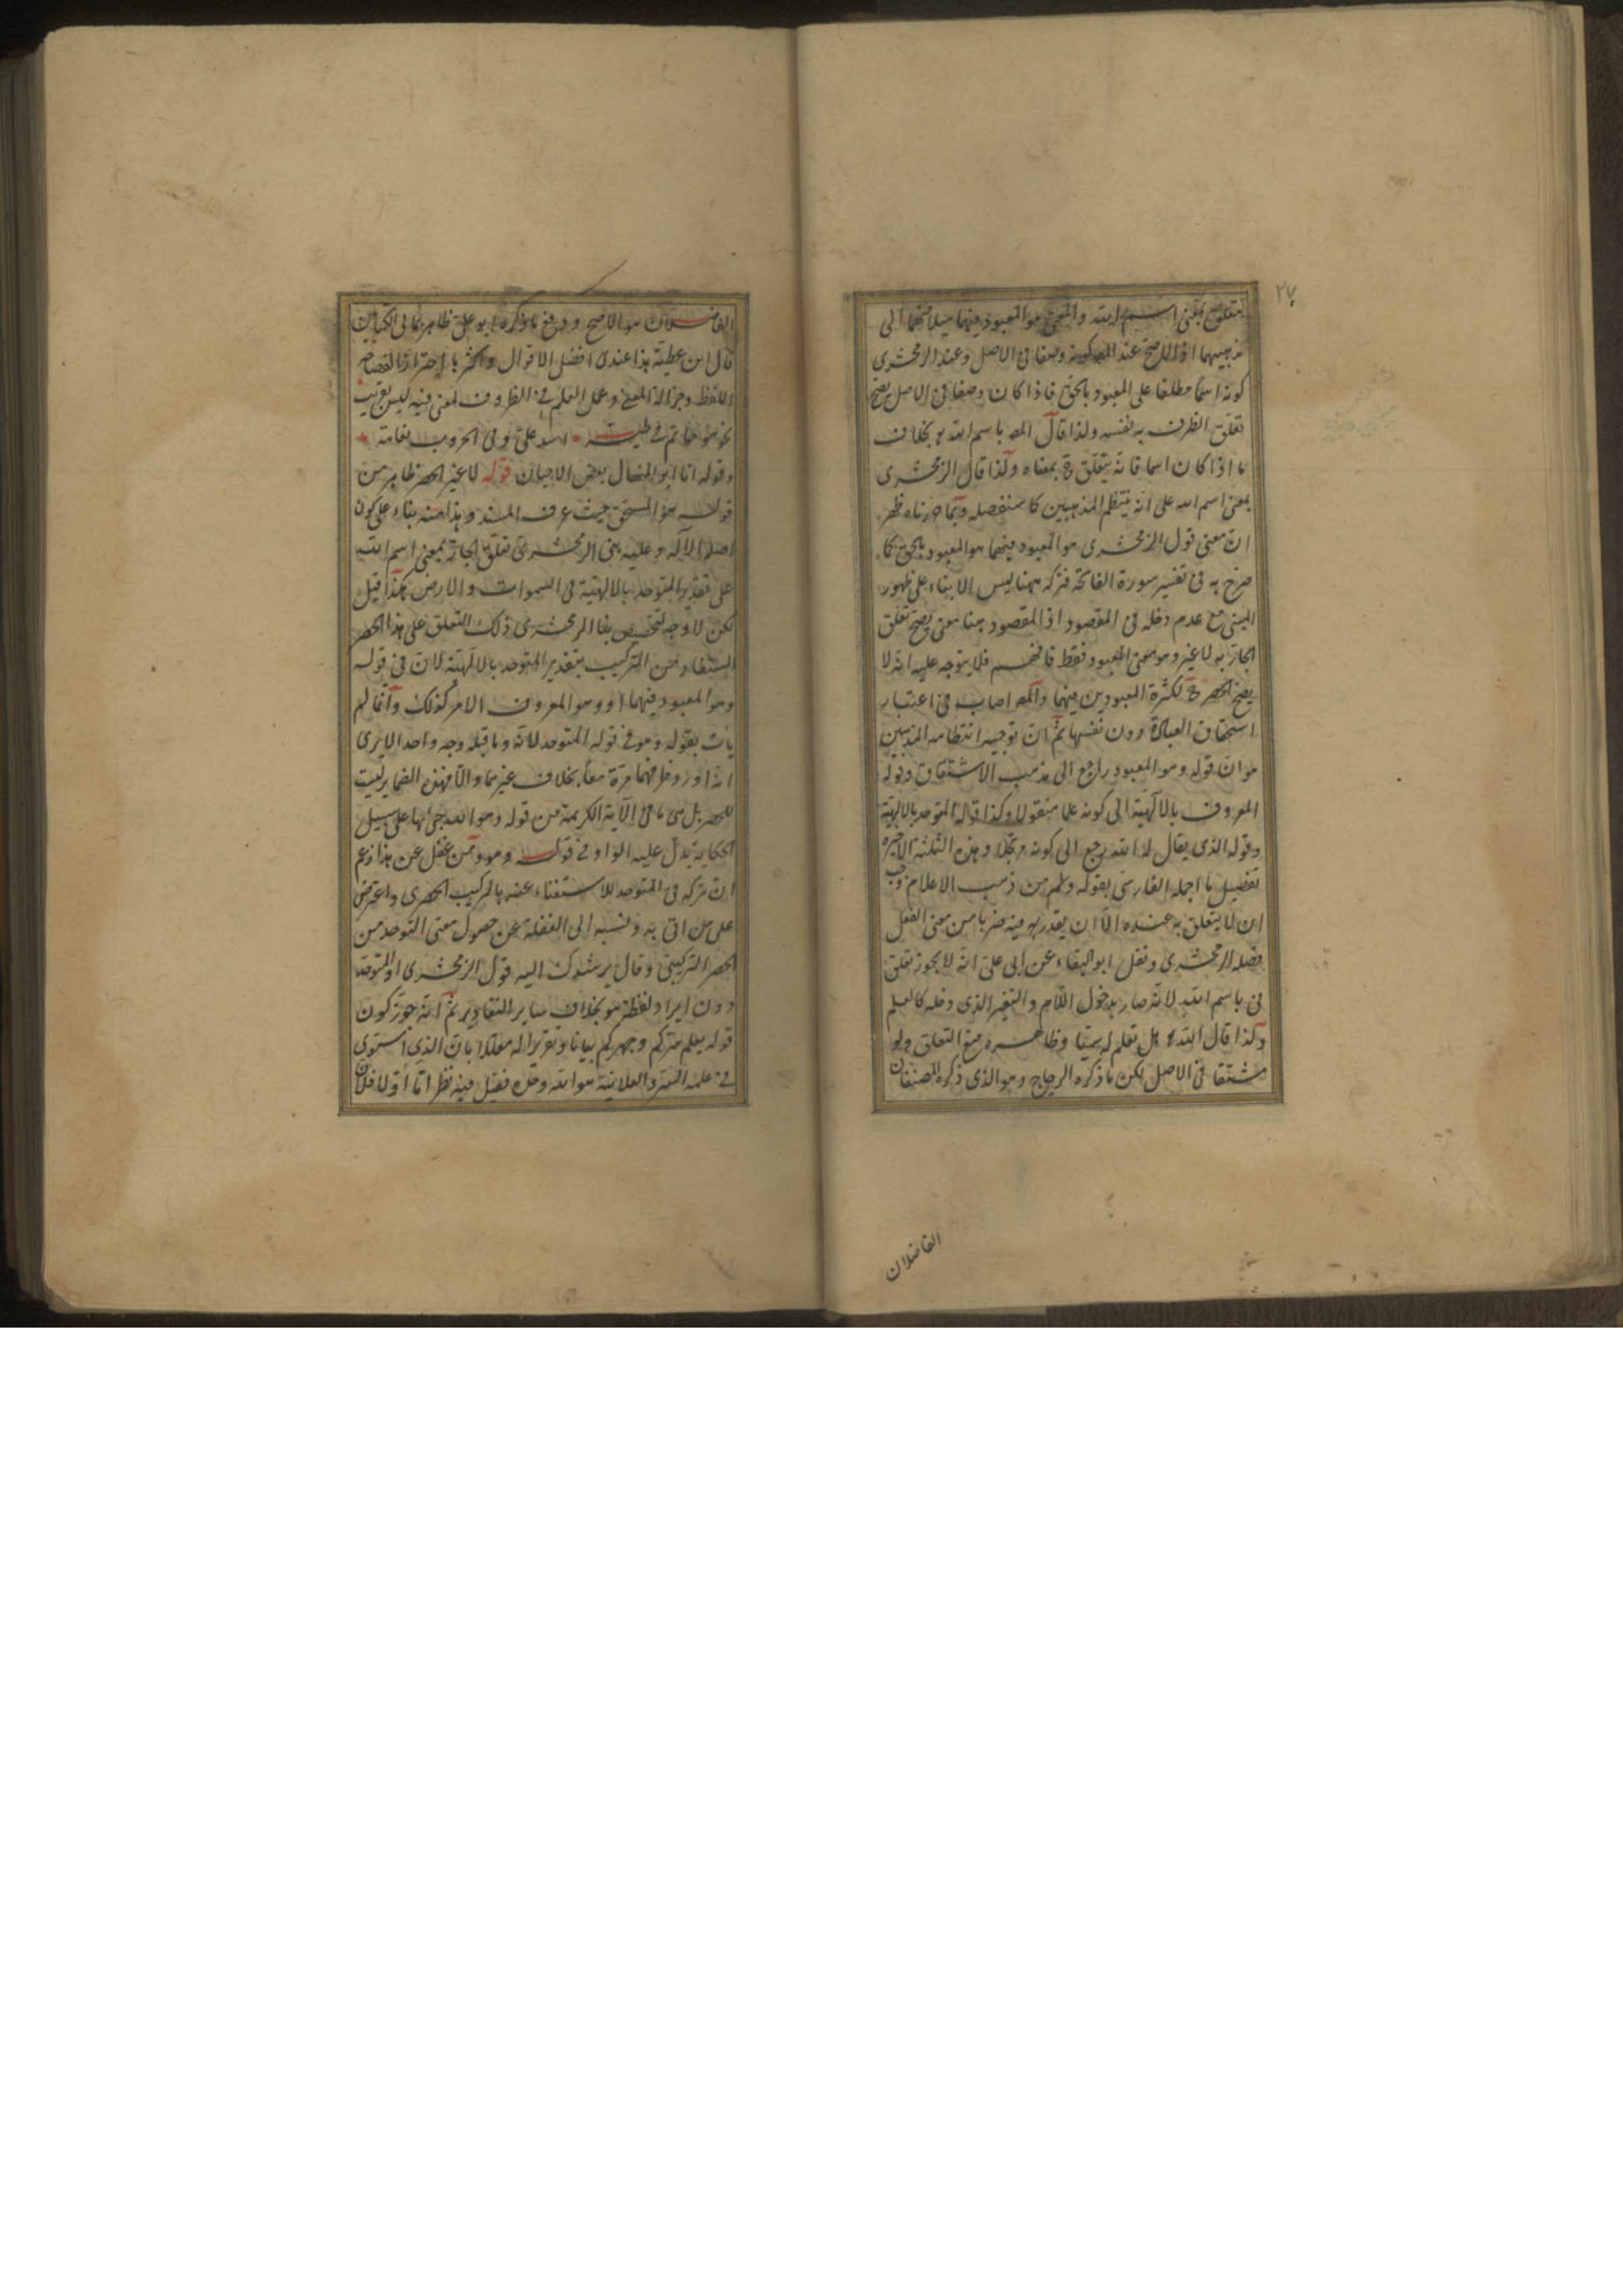 ٢٧
متعلق بمعنى اسم الله والمعنى هو المعبود فيهما ميلا منهما الى
مذهبيهما اذ الاصح عند المص كونه وصفا فى الاصل وعند الزمخشرى
كونه اسما مطلقا على المعبود بالحق فاذا كان وصفا فى الاصل يصح
تعلق الظرف به نفسه ولذا قال المص باسم الله بخلاف
ما اذا كان اسما فانه يتعلق ح بمعناه ولذا قال الزمخشرى
بمعنى اسم الله على انه ينتظم المذهبين كما سنفصله وبما حررناه ظهر
ان معنى قول الزمخشرى هو المعبود فيهما هو المعبود بالحق كما
صرح به فى تفسير سورة الفاتحة فتركه ههنا ليس الا بناء على ظهور
المبنى مع عدم دخله فى المقصود اذ المقصود هنا معنى يصح تعلق
الجار به لا غير وهو معنى المعبود فقط فافهم فلا يتوجه عليه انه لا
يصح الحصر ح لكثرة المعبودين فيهما والمص اصاب فى اعتبار
استحقاق العبادة دون نفسها ثم ان توجيه انتظامه المذهبين
هو ان قوله وهو المعبود راجع الى مذهب الاشتقاق وقوله
المعروف بالالهية الى كونه علما منقولا وكذا قوله المتوحد بالالهية
وقوله الذى يقال له الله رجع الى كونه مرتجلا وهذه الثلثة الاخيرة
تفصيل ما اجمله الفارسى بقوله ولمن ذهب الاعلام وجب
ان لا يتعلق به عنده الا ان يقدر به فيه ضربا من معنى الفعل
فصله الزمخشرى ونقل ابو البقاء عن ابى على انه لا يجوز تعلق
فى باسم الله لانه صار بدخول اللام والتغير الذى دخله كالعلم
وكذا قال الله هل تعلم له سميا وظاهره منع التعلق ولو
مشتقا فى الاصل لكن ما ذكره الزجاج وهو الذى ذكره المصنفان
الفاضلان
الفاضلان هو الاصح ودفع ما ذكره ابو على ظاهر كما فى الكتابين
قال ابن عطية هذا عندى افضل الاقوال واكثرها احترازا لفصاحة
اللفظ وجزالة المعنى وعمل العلم فى الظروف لمعنى فيه ليس بغريب
نحو هو حاتم فى طيئ اسد على وفى الحروب نعامة
وقوله انا ابو المنهال بعض الاحيان قوله لا غير الحصر ظاهر من
قوله هو المستحق حيث عرف المسند وهذا منه بناء على كون
اصله الاله وعليه بنى الزمخشرى تعلق الجار بمعنى اسم الله
على تقدير المتوحد بالالهية فى السموات والارض هكذا قيل
لكن لا وجه لتخصيص بناء الزمخشرى ذلك التعلق على هذا الحصر
المستفاد من التركيب بتقدير المتوحد بالالهية لان فى قوله
وهو المعبود فيهما او وهو المعروف الامر كذلك وانما لم
يأت بقوله وهو فى قوله المتوحد لانه وما قبله وجه واحد الا يرى
انه اورد وظرفهما مرة معا بخلاف غيرهما والا فهذه الضماير ليست
للحصر بل هى ما فى الآية الكريمة من قوله وهو الله جئ بها على سبيل
الحكاية يدل عليه الواو فى قوله وهو ومن غفل عن هذا زعم
ان تركه فى المتوحد للاستغناء عنه بالتركيب الحصرى واعترض
على من اتى به ونسبه الى الغفلة عن حصول معنى التوحد من
الحصر التركيبى وقال يرشدك اليه قول الزمخشرى او المتوحد
دون ايراد لفظة هو بخلاف ساير التقادير ثم انه جوز كون
قوله يعلم سركم وجهركم بيانا وتقريرا له معللا بان الذى استوى
فى علمه السر والعلانية هو الله وحده فقيل فيه نظر اما اولا فلان